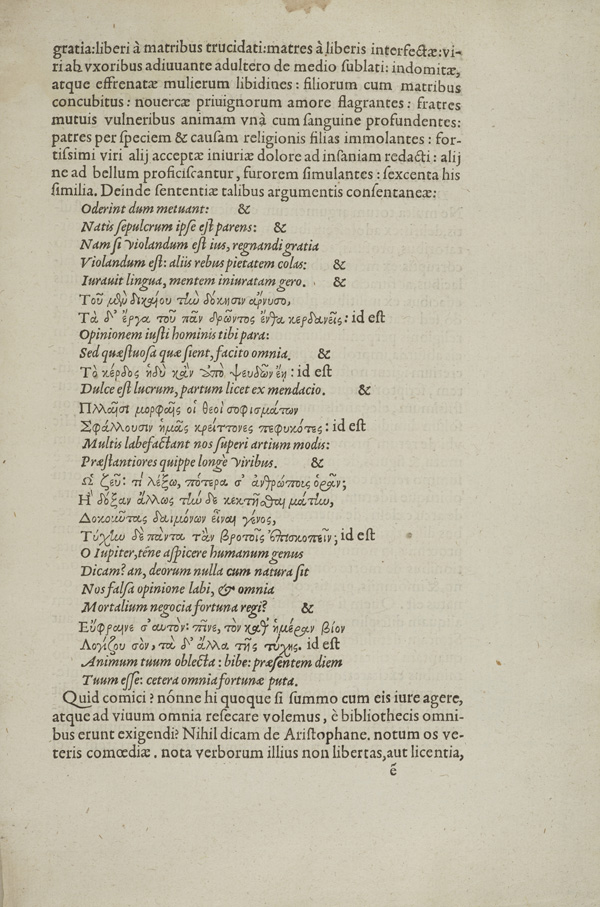 gratia:liberi à matribus trucidati:matres à liberis interfectæ:vi-
ri ab vxoribus adiuuante adultero de medio sublati: indomitæ,
atque effrenatæ mulierum libidines: filiorum cum matribus
concubitus: nouercæ priuignorum amore flagrantes: fratres
mutuis vulneribus animam vnà cum sanguine profundentes:
patres per speciem & causam religionis filias immolantes: for-
tissimi viri alij acceptæ iniuriæ dolore ad insaniam redacti: alij
ne ad bellum proficiscantur, furorem simulantes: sexcenta his
similia. Deinde sententiæ talibus argumentis consentaneæ:
Oderint dum metuant: &
Natis sepulcrum ipse est parens: &
Nam si violandum est ius, regnandi gratia
Violandum est: aliis rebus pietatem colas: &
Iurauit lingua, mentem iniuratam gero. &
Τοῦ μὲν δικαίου τὴν δόκησιν ἄρνυσο,
Τὰ δ' ἔργα τοῦ πᾶν δρῶντος ἔνθα κερδανεῖς: id est
Opinionem iusti hominis tibi para:
Sed quæstuosa quæ sient, facito omnia. &
Τὸ κέρδος ἡδὺ κἂν ὑπὸ ψευδῶν ἔῃ: id est
Dulce est lucrum, partum licet ex mendacio. &
Πλλαῖσι μορφαῖς οἱ θεοὶ σοφισμάτων
Σφάλλουσιν ἡμᾶς κρείττονες πεφυκότες: id est
Multis labefactant nos superi artium modis:
Præstantiores quippe longè viribus. &
Ὦ ζεῦ: τί λέξω, πότερα σ' ἀνθρώποις ὁρᾶν;
Ἢ δόξαν ἄλλως τήνδε κεκτῆσθαι μάτην,
Δοκοῦντας δαιμόνων εἶναι γένος,
Τύχην δὲ πάντα τἂν βροτοῖς ἐπισκοπεῖν; id est
O Iupiter, téne aspicere humanum genus
Dicam? an, deorum nulla cum natura sit
Nos falsa opinione labi, & omnia
Mortalium negocia fortuna regi? &
Εὔφραινε σ'αυτὸν: πῖνε, τὸν καθ' ἡμέραν βίον
Λογίζου σὸν, τὰ δ' ἄλλα τῆς τύχης. id est
Animum tuum oblecta: bibe: præsentem diem
Tuum esse: cetera omnia fortunæ puta.
Quid comici? nónne hi quoque si summo cum eis iure agere,
atque ad viuum omnia resecare volemus, è bibliothecis omni-
bus erunt exigendi? Nihil dicam de Aristophane. notum os ve-
teris comœdiæ. nota verborum illius non libertas, aut licentia,
ẽ